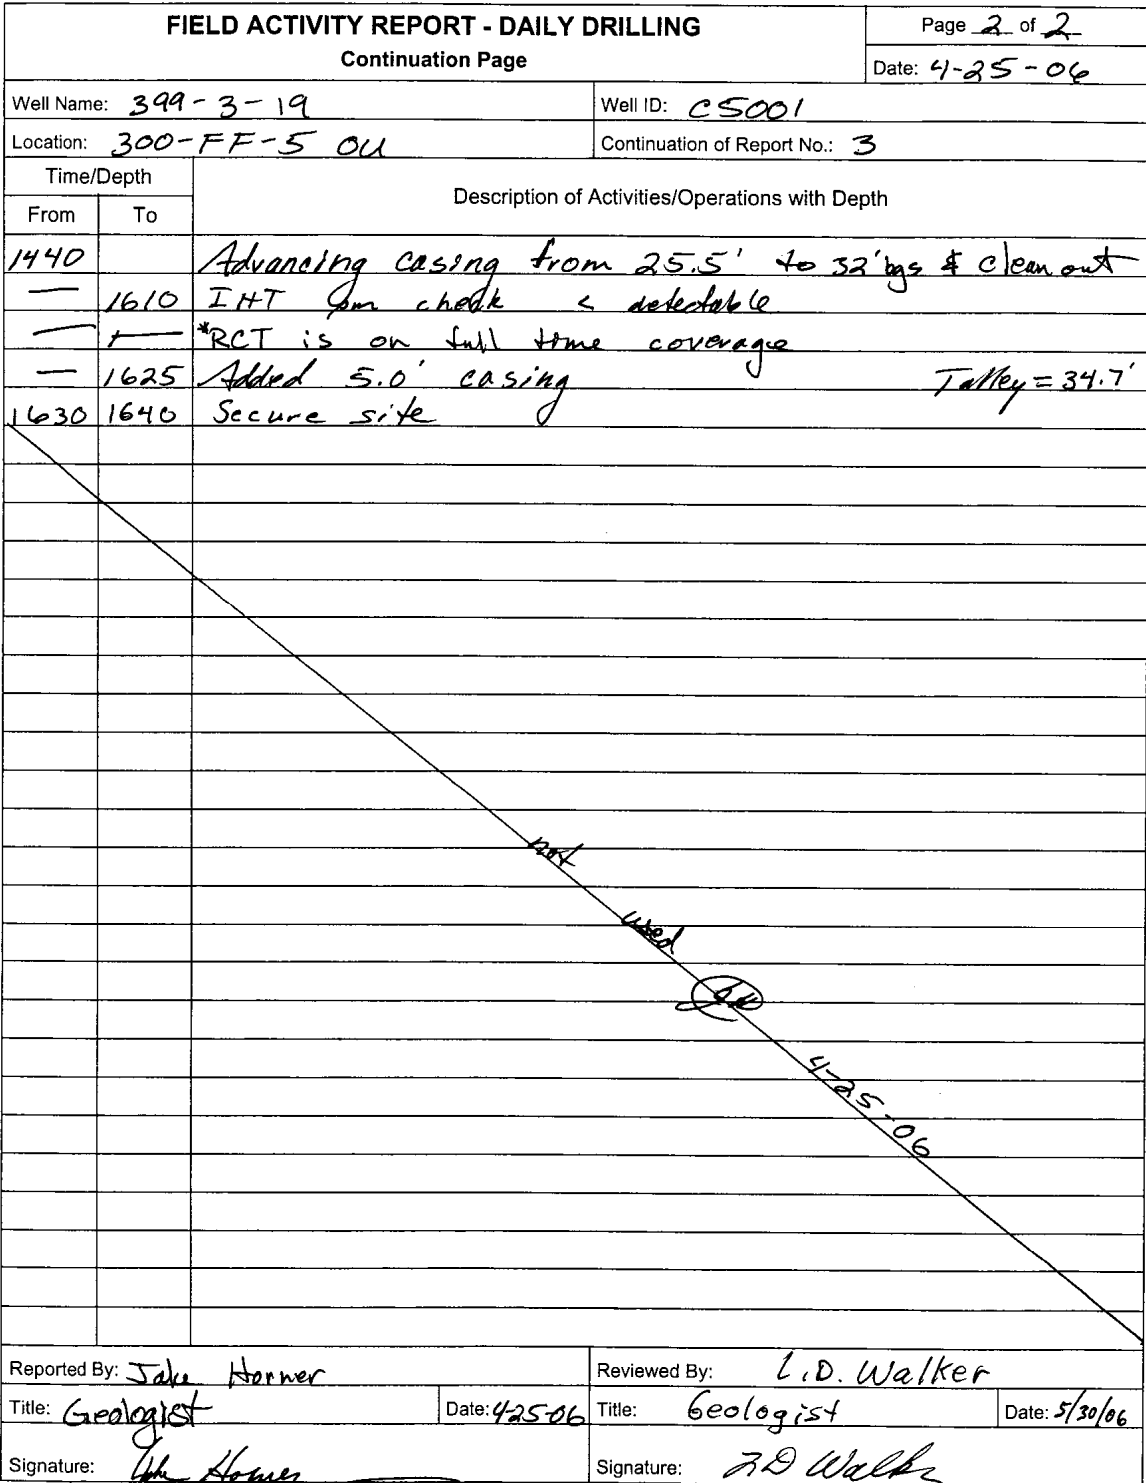 FIELD ACTIVITY REPORT - DAILY DRILLING
Continuation Page
Page 2 of 2
Date: 4-25-06
Well Name: 399-3-19
Well ID: C5001
Location: 300-FF-5 OU
Continuation of Report No.: 3
Time/Depth
From To
Description of Activities/Operations with Depth
1440 Advancing casing from 25.5' to 32' bgs & clean out
— 1610 IHT check < detectable
— — *RCT is on full time coverage
— 1625 Added 5.0' casing Talley = 34.7'
1630 1640 Secure site
not
used
4-25-06
Reported By: Jake Horner
Reviewed By: L.D. Walker
Title: Geologist Date: 4-25-06
Title: Geologist Date: 5/30/06
Signature: Jake Horner
Signature: LD Walker